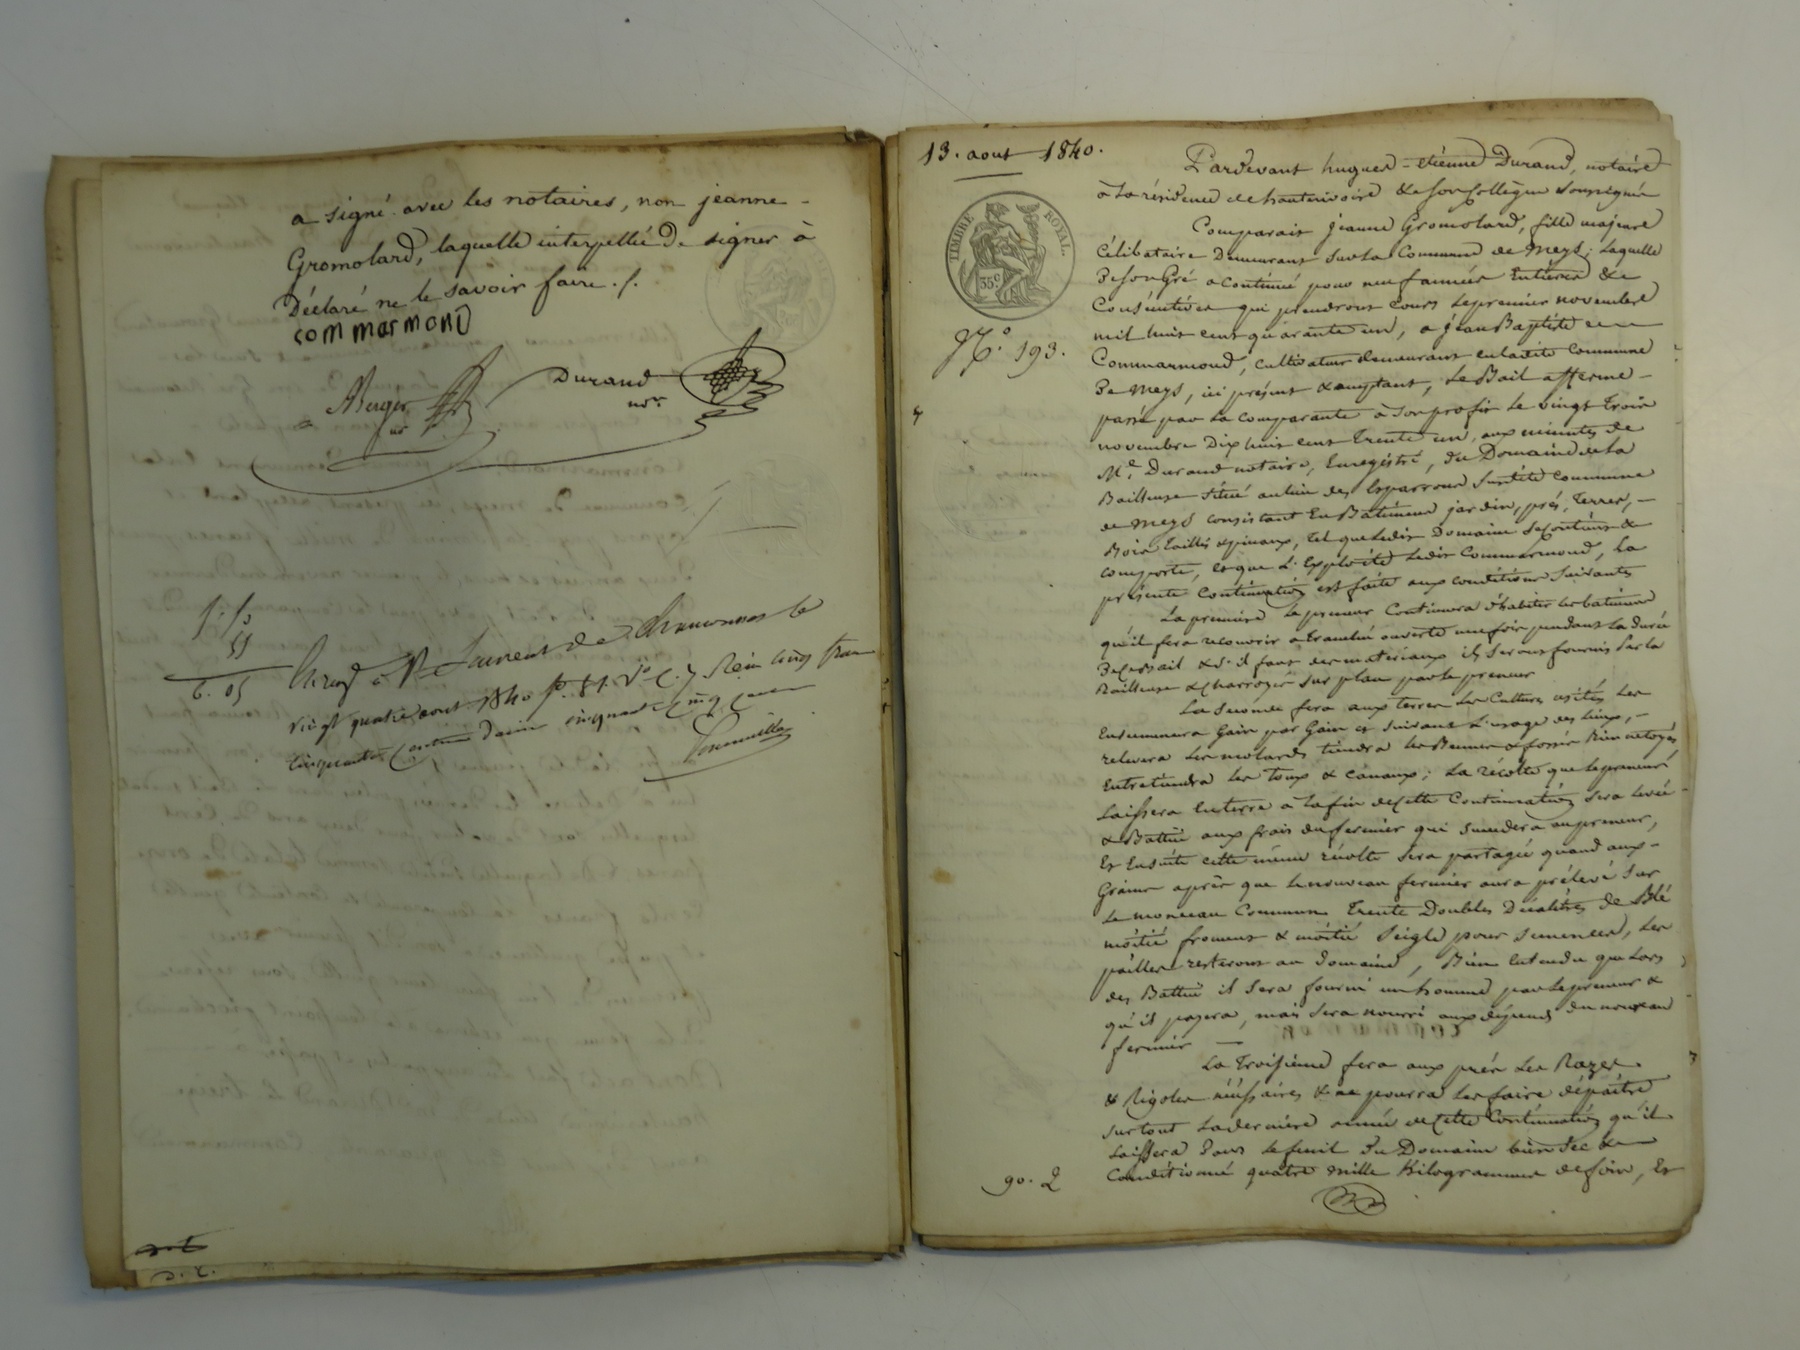 a signé avec les notaires, non jeanne -
Gromolard, laquelle interpellée de signer à
Déclaré ne le savoir faire ./.
commarmond
ABerger
nre
Durand
nore
5. 50
55
6. 05
Enreg à St Laurent de Chamousset le
vingt quatre aout 1840 fo. 81. Vo C. 7 Reçu cinq francs
cinquante centimes décime cinquante cinq centimes
D. L.
13. aout 1840.
TIMBRE ROYAL.
35c
No. 193.
Pardevant hugues - etienne Durand, notaire
à la résidence de hauterivoire & son Collègue soussignés
Comparait jeanne Gromolard, fille majeure
Célibataire Demeurant sur la Commune de Meys; laquelle
De son Gré a Continué pour neuf années Entières &
Consécutives qui prendront cours le premier novembre
mil huit cent quarante un, a jean Baptiste
Commarmond, cultivateur demeurant en ladite Commune
De Meys, ici présent & acceptant, le Bail afferme -
passé par la comparante à son profit le vingt trois
novembre Dix huit cent Trente un, aux minutes de
Me. Durand notaire, Enregistré, du Domaine de la
Bailleuse situé au lieu des Esparrons Susdite Commune
de Meys consistant En Batiment jardin, prés, Terres, -
Bois Taillis & pinaux, tel que ledit Domaine se Contient &
comporte, et que L'Exploite ledit Commarmond, la
présente Continuation est faite aux conditions suivantes
La première le preneur Continuera d'habiter les batiments
qu'il fera recouvrir a tranchée ouverte une fois pendant la durée
De ce Bail & s'il faut des materiaux ils seront fournis par la
Bailleuse & charroyés sur place par le preneur
La seconde fera aux terres les Cultures usitées les
Ensemencera Gain par Gain et suivant L'usage des lieux, -
relevera les molards tiendra les Bennes & fossés Bien netoyés
Entretiendra les toux & canaux; La récolte que le preneur
Laissera En terre à la fin de Cette Continuation sera levée
& Battue aux frais du fermier qui succedera au preneur,
Et Ensuite cette même récolte sera partagée quand aux -
Grains après que le nouveau fermier aura prélevé sur
Le monceau Commun Trente Doubles Décalitres de Blé
moitié froment & moitié Seigle pour semences, les
pailles resteront au domaine, Bien Entendu que lors
des Battues il sera fourni un homme par le preneur &
qu'il payera, mais sera nourri aux dépends du nouveau
fermier —
La Troisième fera aux prés les Razes
& Rigoles nécéssaires & ne pourra les faire dépaitre
surtout la dernière année de Cette Continuation qu'il
Laissera Dans le fenil du Domaine bien sec &
Conditionné quatre mille Kilogrammes de foin, Et
90. 2